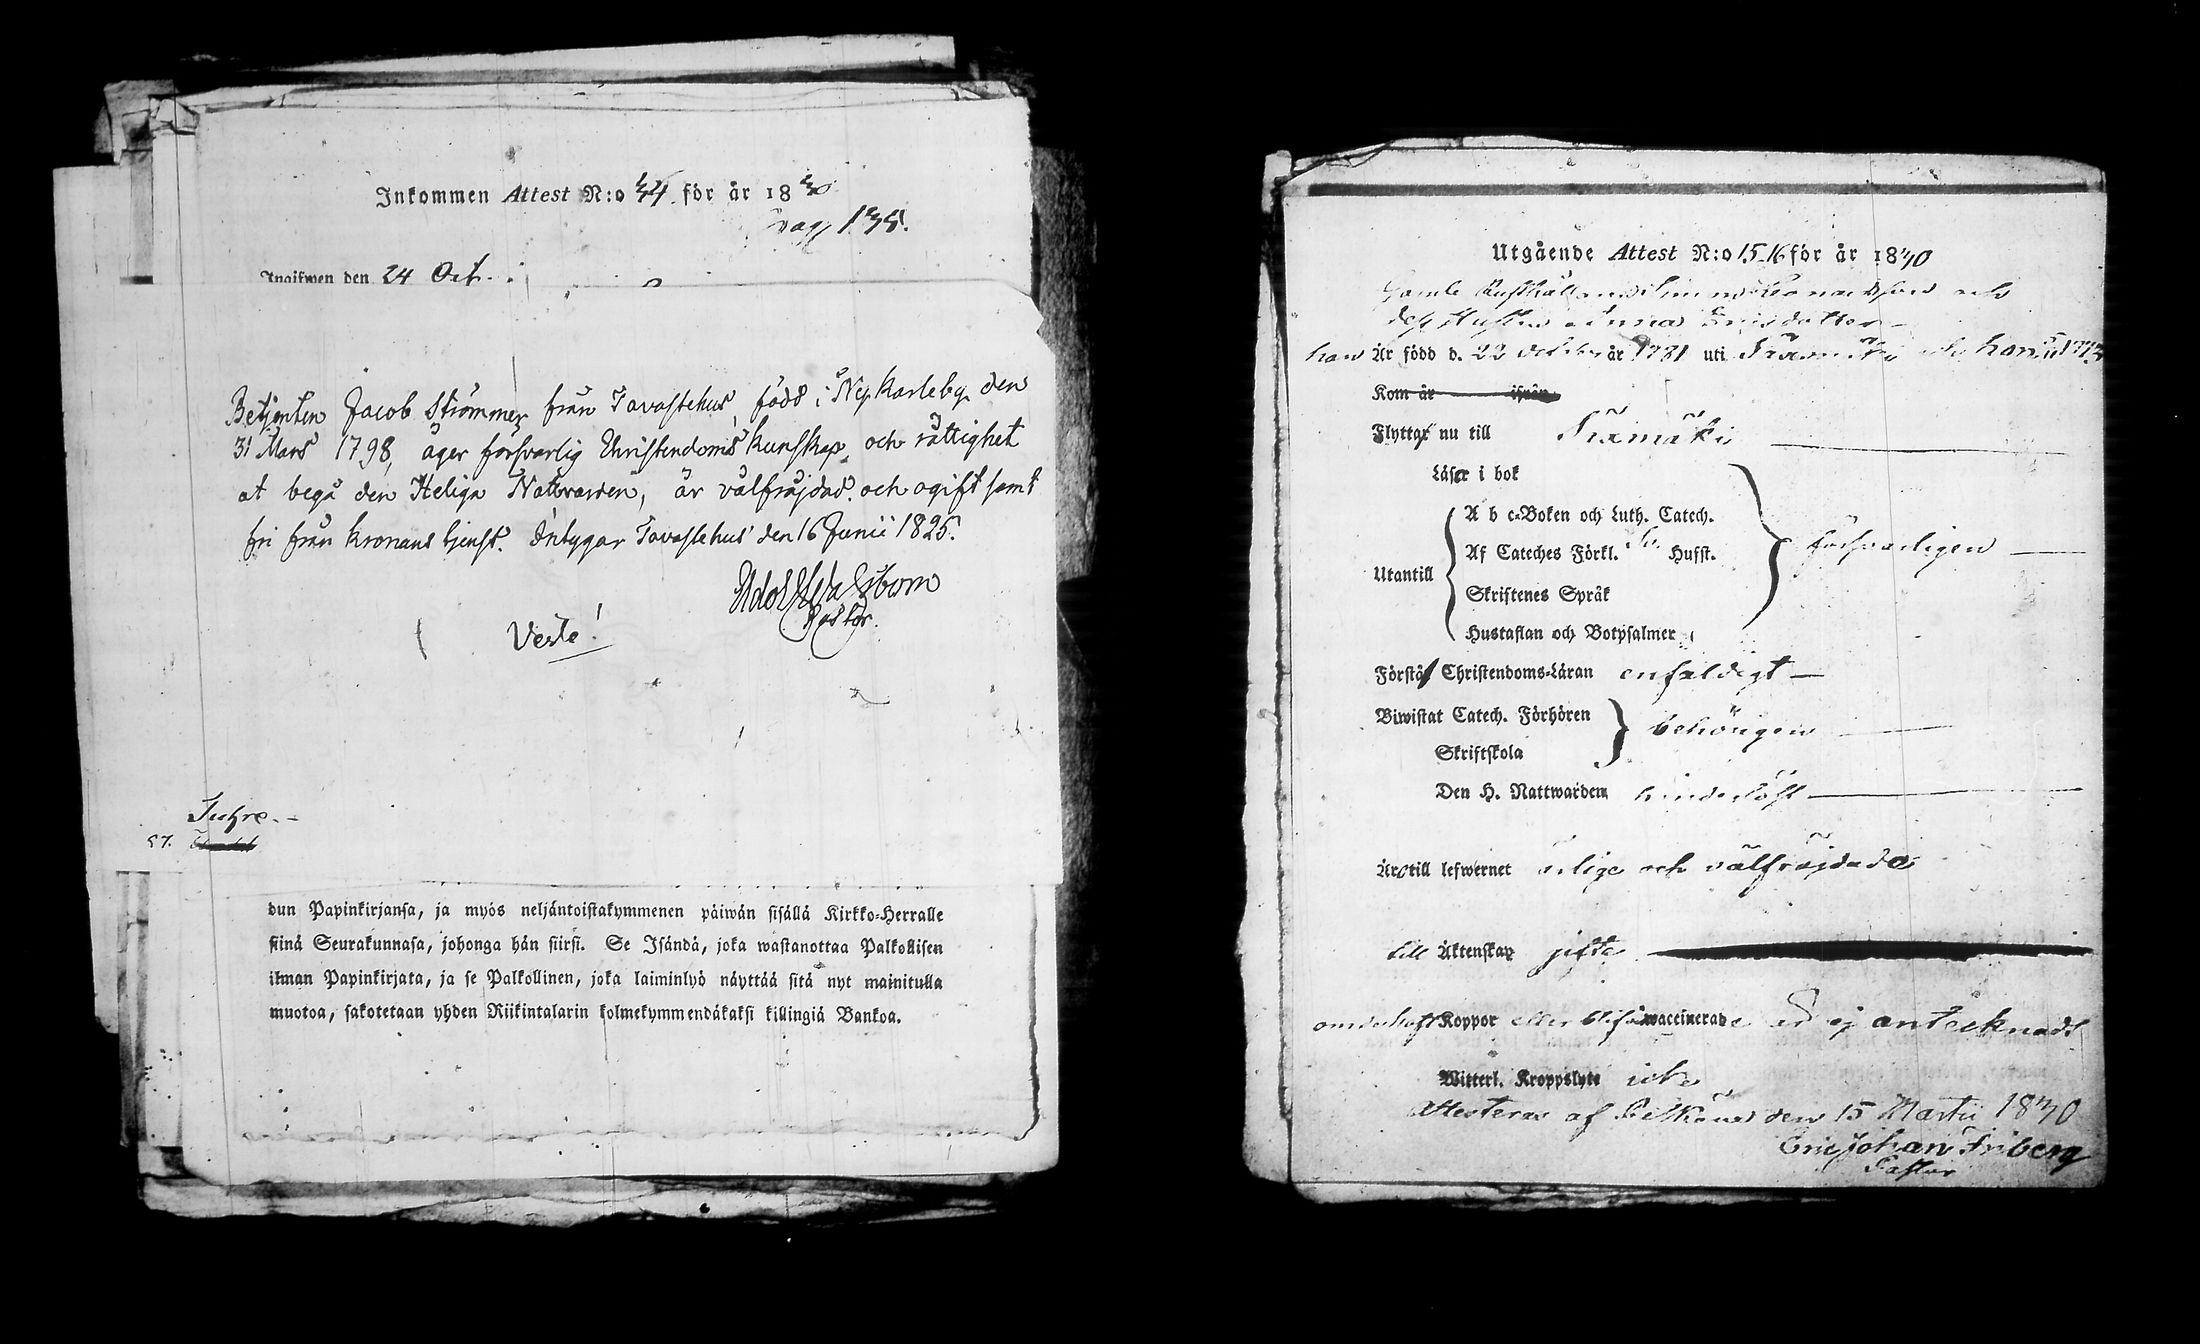 Inkommen Attest N:o 44 för år 1830
pag 135.
Ingifwen den 24 Oct.
Betjenten Jacob Strömmer från Tavastehus, född i Ny Karleby den
31 Mars 1798, äger försvarlig Christendoms kunskap, och rättighet
at begå den Heliga Nattvarden, är välfräjdad och ogift samt
fri från kronans tjenst. Intygar Tavastehus den 16 Junii 1825.
Pastor.
Verte!
27.
dun Papinkirjansa, ja myös neljäntoistakymmenen päiwän sisällä Kirkko-Herralle
siinä Seurakunnasa, johonga hän siirsi. Se Isändä, joka wastanottaa Palkollisen
ilman Papinkirjata, ja se Palkollinen, joka laiminlyö näyttää sitä nyt mainitulla
muotoa, sakotetaan yhden Riikintalarin kolmekymmendäkaksi killingiä Bankoa.
Utgående Attest N:o 15-16 för år 1830
Gamle och
dess Hustru Anna Ericsdotter
han Är född d. 22 October år 1781 uti och hon
Kom år ifrån
Flyttar nu till
Läser i bok
Utantill
A b c-Boken och Luth. Catech.
Af Cateches Förkl. Sv. Husst.
Skriftenes Språk
Hustaflan och Botpsalmer
försvarligen
Förstå Christendoms-Läran enfaldigt
Biwistat Catech. Förhören
Skriftskola
behörigen
Den H. Nattwarden hinderlöst
Äro till lefwernet ärlige och välfräjdade
till Äktenskap gifte
om de haft Koppor eller blifvit waccinerade är ej antecknadt
Witterl. Kroppslyte icke
Attesteras af den 15 Martii 1830
Eric Johan Friberg
Pastor